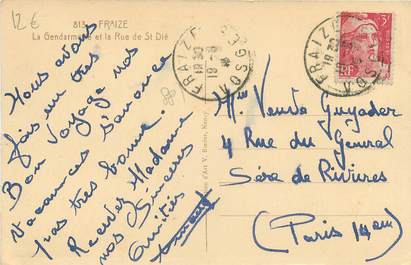 12€
813. - FRAIZE
La Gendarmerie et la Rue de St Dié
Nous avons
fais un très
Bon Voyage nos
vacances s'avance
pas très bonne.
Recevez Madame
nos Sincères
Amitiés
FRAIZE
VOSGES
19 30
19 -8
FRAIZE
VOSGES
19 30
RF
Mme Veuve Guyader
4 Rue du Général
Séré de Rivières
(Paris 14em)